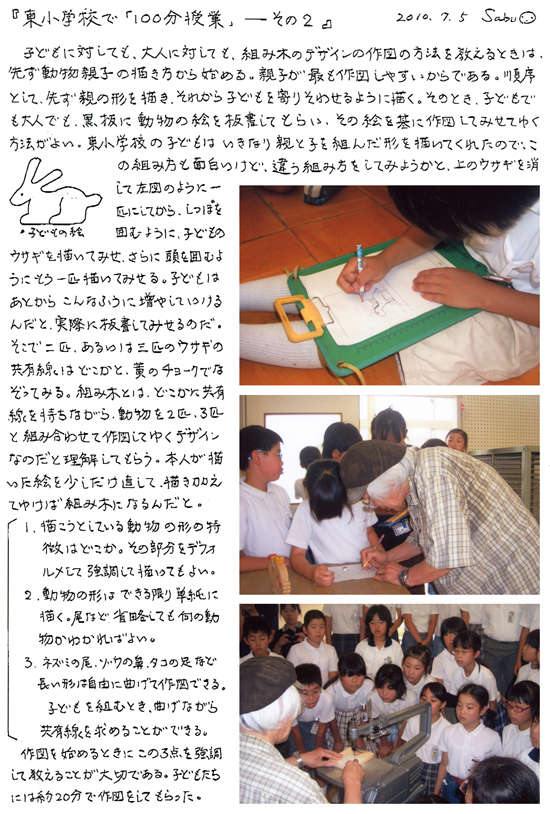 『東小学校で「100分授業」—その2』 2010.7.5 Sabu
子どもに対しても、大人に対しても、組み木のデザインの作図の方法を教えるときは、
先ず動物親子の描き方から始める。親子が最も作図しやすいからである。順序
として、先ず親の形を描き、それから子どもを寄りそわせるように描く。そのとき、子どもで
も大人でも、黒板に動物の絵を板書してもらい、その絵を基に作図してみせてゆく
方法がよい。東小学校の子どもはいきなり親と子を組んだ形を描いてくれたので、こ
の組み方も面白いけど、違う組み方をしてみようかと、上のウサギを消
して左図のように一
匹にしてから、しっぽを
囲むように、子どもの
・子どもの絵
ウサギを描いてみせ、さらに頭を囲むよ
うにもう一匹描いてみせる。子どもは
あとからこんなふうに増やしていける
んだと、実際に板書してみせるのだ。
そこで二匹、あるいは三匹のウサギの
共有線はどこかと、黄のチョークでな
ぞってみる。組み木とは、どこかに共有
線を持ちながら、動物を2匹、3匹
と組み合わせて作図してゆくデザイン
なのだと理解してもらう。本人が描
いた絵を少しだけ直して、描き加え
てゆけば組み木になるんだと。
1. 描こうとしている動物の形の特
徴はどこか。その部分をデフォ
ルメして強調して描いてもよい。
2. 動物の形はできる限り単純に
描く。尾など省略しても何の動
物かわかればよい。
3. ネズミの尾、ゾウの鼻、タコの足など
長い形は自由に曲げて作図できる。
子どもを組むとき、曲げながら
共有線を求めることができる。
作図を始めるときにこの3点を強調
して教えることが大切である。子どもたち
には約20分で作図をしてもらった。